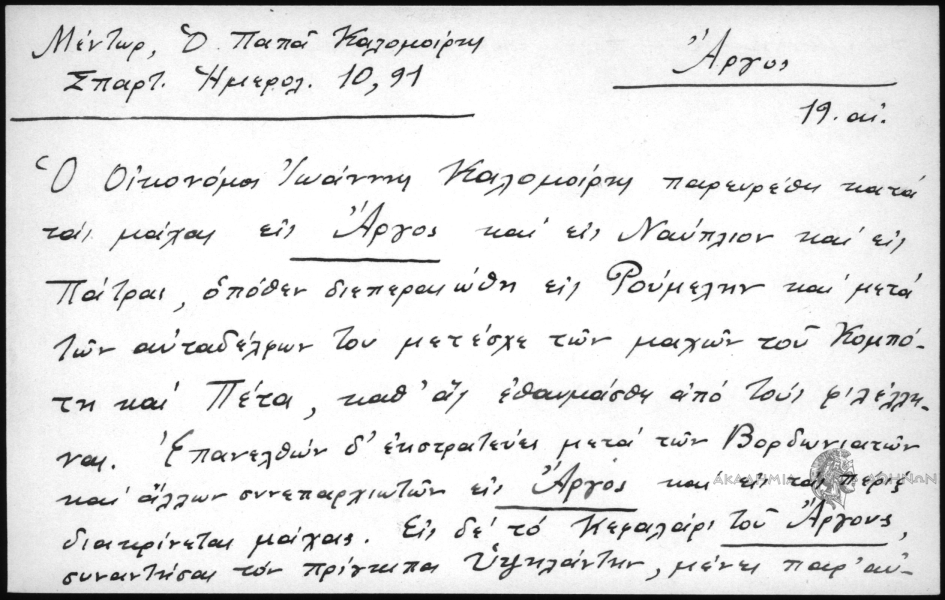 Μέντωρ, Ὁ Παπᾶ Καλομοίρης
Σπαρτ. Ἡμερολ. 10, 91
Ἄργος
19. αἰ.
Ὁ Οἰκονόμος Ἰωάννης Καλομοίρης παρευρέθη κατὰ
τὰς μάχας εἰς Ἄργος καὶ εἰς Ναύπλιον καὶ εἰς
Πάτρας, ὁπόθεν διεπεραιώθη εἰς Ρούμελην καὶ μετὰ
τῶν αὐταδέλφων του μετέσχε τῶν μαχῶν τοῦ Κομπό-
τη καὶ Πέτα, καθ' ἃς ἐθαυμάσθη ἀπὸ τοὺς φιλέλλη-
νας. Ἐπανελθὼν δ' ἐκστρατεύει μετὰ τῶν Βορδωνιατῶν
καὶ ἄλλων συνεπαρχιωτῶν εἰς Ἄργος καὶ εἰς τὰς πέριξ
διακρίνεται μάχας. Εἰς δὲ τὸ Κεφαλάρι τοῦ Ἄργους,
συναντήσας τὸν πρίγκιπα Ὑψηλάντην, μένει παρ' αὐ-
ΑΚΑΔΗΜΙΑ ΑΘΗΝΩΝ